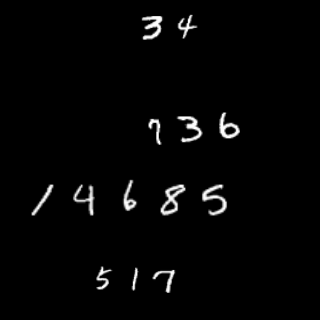 34
736
14685
517